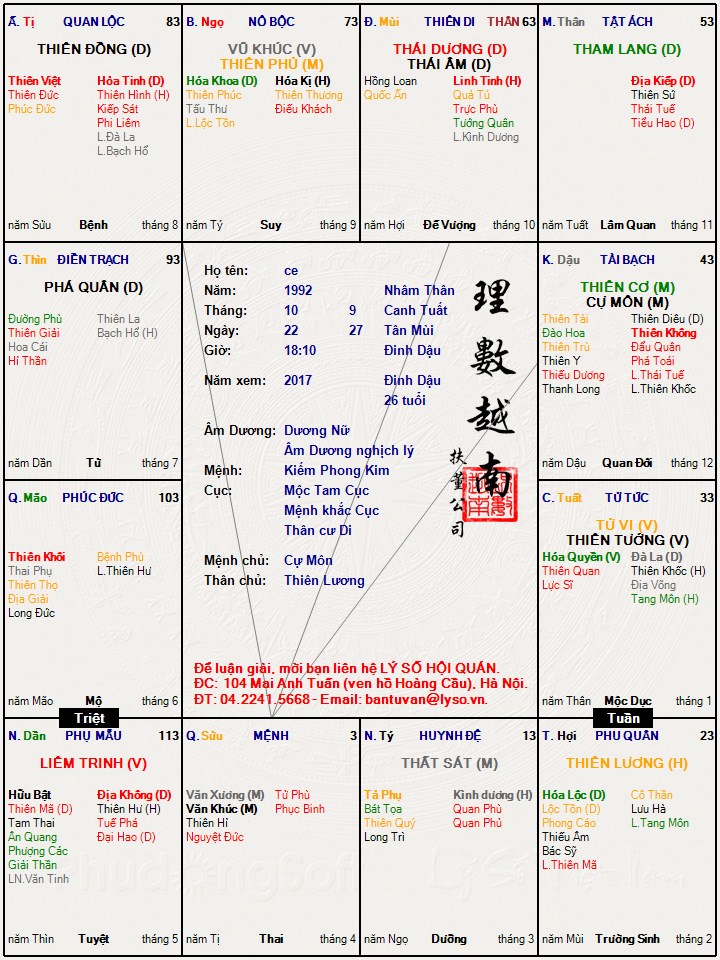 Ấ. Tị QUAN LỘC 83
THIÊN ĐỒNG (D)
Thiên Việt Hỏa Tinh (D)
Thiên Đức Thiên Hình (H)
Phúc Đức Kiếp Sát
Phi Liêm
L.Đà La
L.Bạch Hổ
năm Sửu Bệnh tháng 8
B. Ngọ NÔ BỘC 73
VŨ KHÚC (V)
THIÊN PHỦ (M)
Hóa Khoa (D) Hóa Kị (H)
Thiên Phúc Thiên Thương
Tấu Thư Điếu Khách
L.Lộc Tồn
năm Tý Suy tháng 9
Đ. Mùi THIÊN DI THÂN 63
THÁI DƯƠNG (D)
THÁI ÂM (D)
Hồng Loan Linh Tinh (H)
Quốc Ấn Quả Tú
Trực Phù
Tướng Quân
L.Kình Dương
năm Hợi Đế Vượng tháng 10
M. Thân TẬT ÁCH 53
THAM LANG (D)
Địa Kiếp (D)
Thiên Sứ
Thái Tuế
Tiểu Hao (D)
năm Tuất Lâm Quan tháng 11
G. Thìn ĐIỀN TRẠCH 93
PHÁ QUÂN (D)
Đường Phù Thiên La
Thiên Giải Bạch Hổ (H)
Hoa Cái
Hỉ Thần
năm Dần Tử tháng 7
Họ tên: ce
Năm: 1992 Nhâm Thân
Tháng: 10 9 Canh Tuất
Ngày: 22 27 Tân Mùi
Giờ: 18:10 Đinh Dậu
Năm xem: 2017 Đinh Dậu
26 tuổi
Âm Dương: Dương Nữ
Âm Dương nghịch lý
Mệnh: Kiếm Phong Kim
Cục: Mộc Tam Cục
Mệnh khắc Cục
Thân cư Di
Mệnh chủ: Cự Môn
Thân chủ: Thiên Lương
理數越南
扶董公司
Để luận giải, mời bạn liên hệ LÝ SỐ HỘI QUÁN.
ĐC: 104 Mai Anh Tuấn (ven hồ Hoàng Cầu), Hà Nội.
ĐT: 04.2241.5668 - Email: bantuvan@lyso.vn.
K. Dậu TÀI BẠCH 43
THIÊN CƠ (M)
CỰ MÔN (M)
Thiên Tài Thiên Diêu (D)
Đào Hoa Thiên Không
Thiên Trù Đẩu Quân
Thiên Y Phá Toái
Thiếu Dương L.Thái Tuế
Thanh Long L.Thiên Khốc
năm Dậu Quan Đới tháng 12
Q. Mão PHÚC ĐỨC 103
Thiên Khôi Bệnh Phù
Thai Phụ L.Thiên Hư
Thiên Thọ
Địa Giải
Long Đức
năm Mão Mộ tháng 6
Triệt
C. Tuất TỬ TỨC 33
TỬ VI (V)
THIÊN TƯỚNG (V)
Hóa Quyền (V) Đà La (D)
Thiên Quan Thiên Khốc (H)
Lực Sĩ Địa Võng
Tang Môn (H)
năm Thân Mộc Dục tháng 1
Tuần
N. Dần PHỤ MẪU 113
LIÊM TRINH (V)
Hữu Bật Địa Không (D)
Thiên Mã (D) Thiên Hư (H)
Tam Thai Tuế Phá
Ân Quang Đại Hao (D)
Phượng Các
Giải Thần
LN.Văn Tinh
năm Thìn Tuyệt tháng 5
Q. Sửu MỆNH 3
Văn Xương (M) Tử Phù
Văn Khúc (M) Phục Binh
Thiên Hỉ
Nguyệt Đức
năm Tị Thai tháng 4
N. Tý HUYNH ĐỆ 13
THẤT SÁT (M)
Tả Phụ Kình dương (H)
Bát Tọa Quan Phù
Thiên Quý Quan Phủ
Long Trì
năm Ngọ Dưỡng tháng 3
T. Hợi PHU QUÂN 23
THIÊN LƯƠNG (H)
Hóa Lộc (D) Cô Thần
Lộc Tồn (D) Lưu Hà
Phong Cáo L.Tang Môn
Thiếu Âm
Bác Sỹ
L.Thiên Mã
năm Mùi Trường Sinh tháng 2